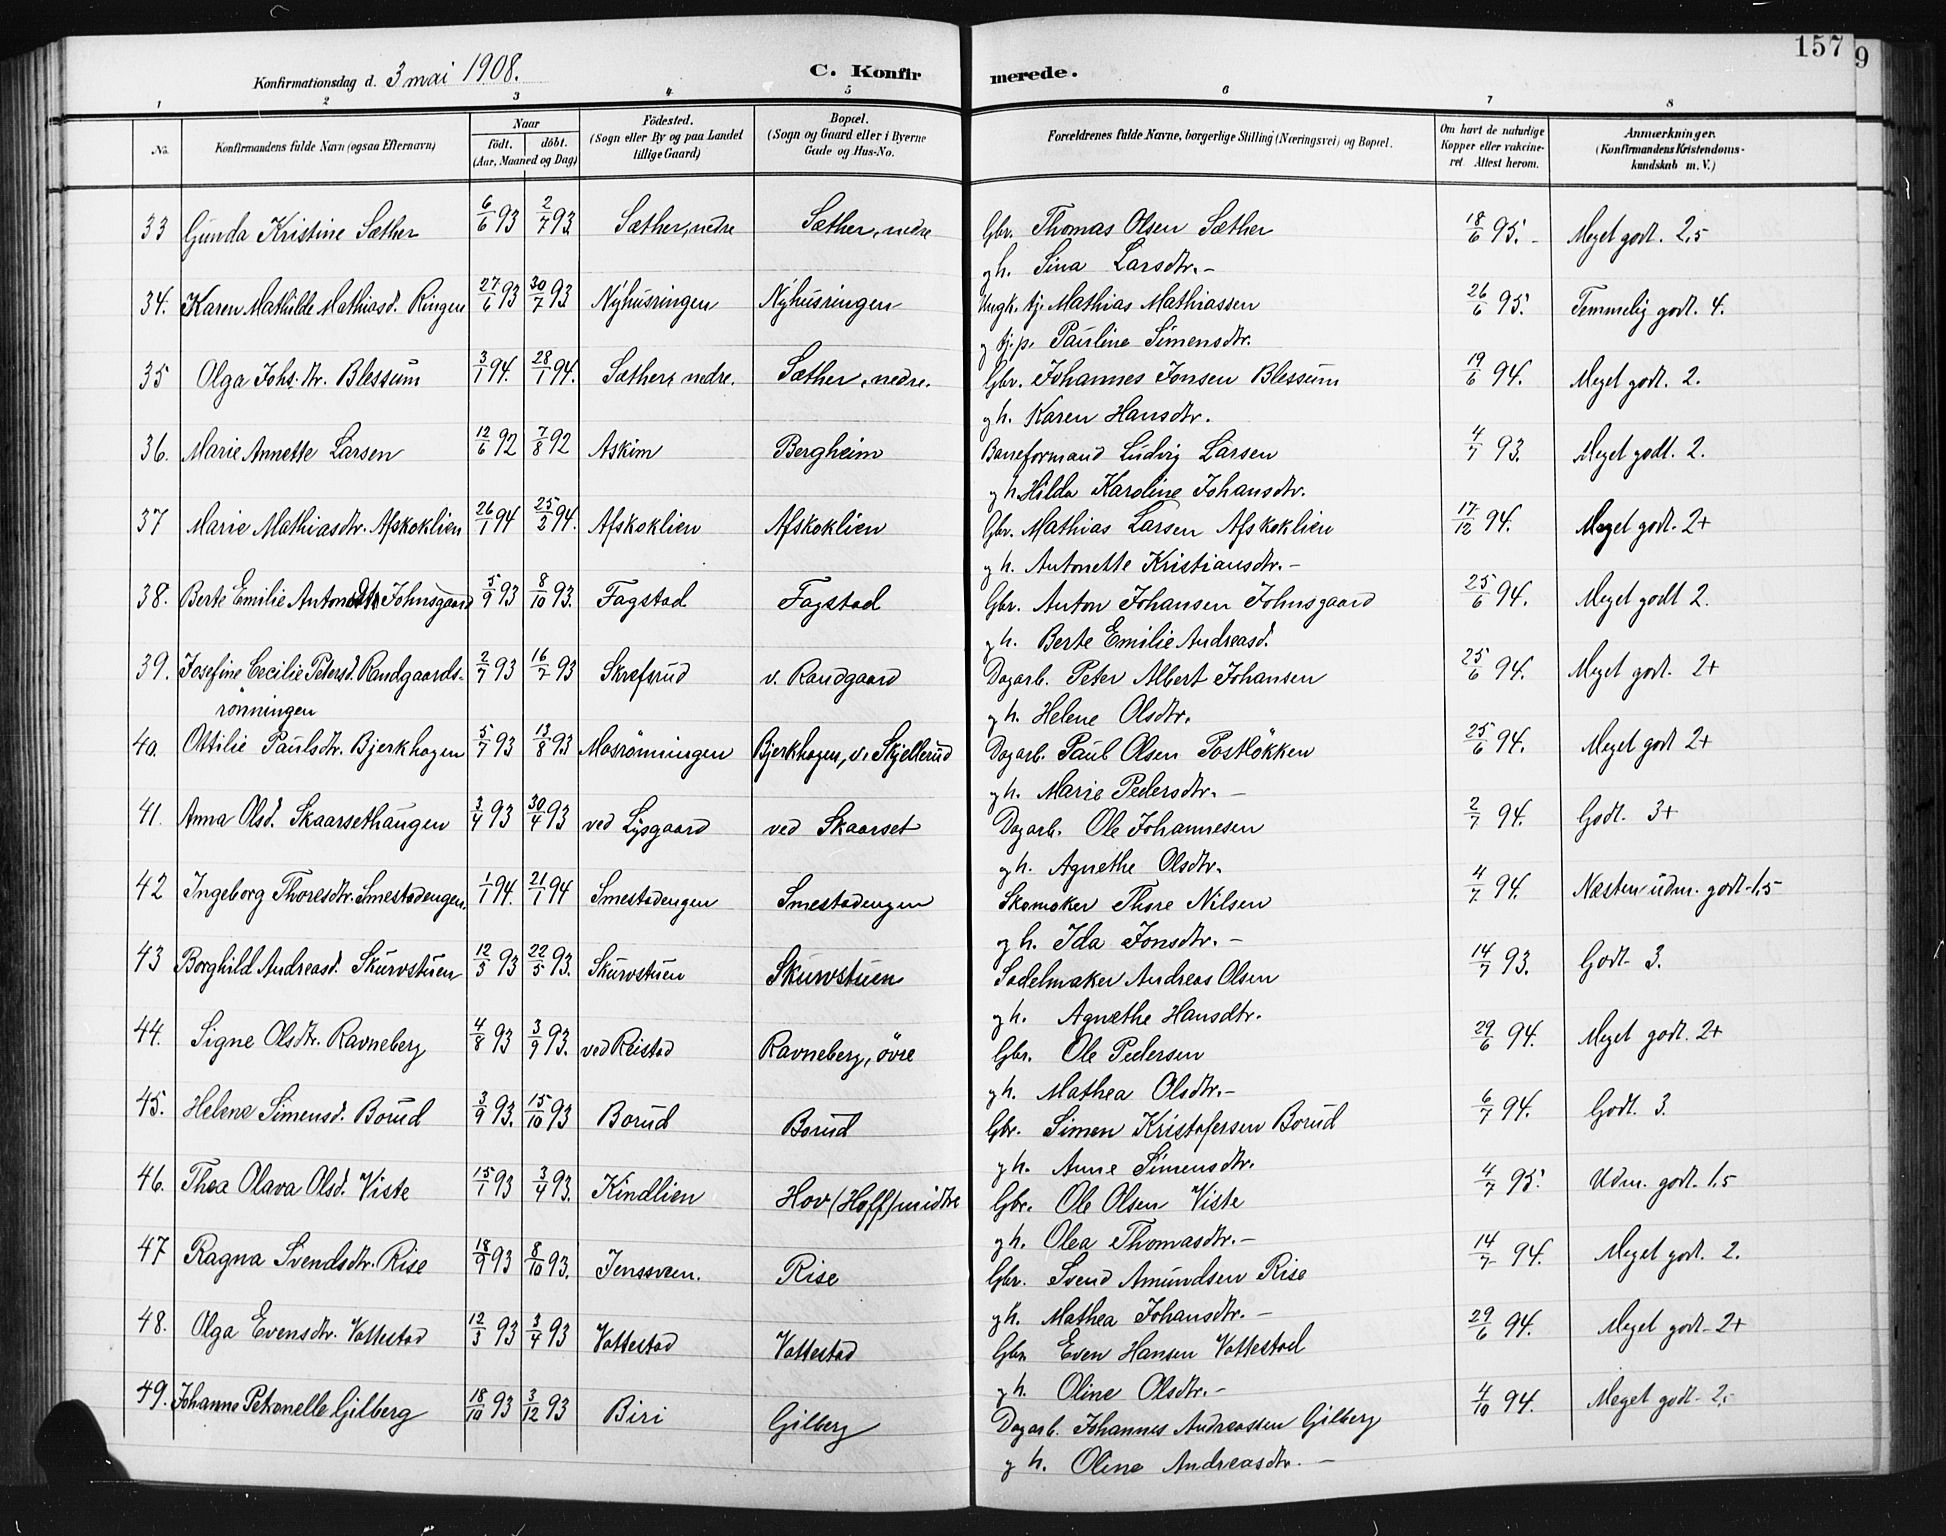 157
9
Konfirmationsdag d. 3 mai 1908. C. Konfir merede.
1 2 3 4 5 6 7 8
No. Konfirmandens fulde Navn (ogsaa Efternavn) Naar født. døbt. (Aar, Maaned og Dag) Fødested. (Sogn eller By og paa Landet tillige Gaard) Bopæl. (Sogn og Gaard eller i Byerne Gade og Hus-No. Forældrenes fulde Navne, borgerlige Stilling (Næringsvei) og Bopæl. Om havt de naturlige Kopper eller vakcineret. Attest herom. Anmærkninger. (Konfirmandens Kristendomskundskab m. V.)
33 Gunda Kristine Sæther 6/6 93 2/7 93. Sæther, nedre Sæther, nedre Gbr. Thomas Olsen Sæther 18/6 95. - Meget godt. 2,5
og h. Sina Larsdtr. -
34. Karen Mathilde Mathiasd. Ringen 27/6 93 30/7 93 Nyhusringen Nyhusringen Ungk. Gj. Mathias Mathiassen 26/6 95. Temmelig godt. 4.
og pi. Pauline Simensdtr.
35 Olga Johs. dtr. Blessum 3/1 94. 28/1 94. Sæther, nedre. Sæther, nedre. Gbr. Johannes Jonsen Blessum 19/6 94. Meget godt. 2.
og h. Karen Hansdtr.
36. Marie Annette Larsen 12/6 92 7/8 92 Askim Bergheim Baneformand Ludvig Larsen 4/7 93. Meget godt. 2.
og h. Hilda Karoline Johansdtr.
37 Marie Mathiasdtr. Afskoklien 26/1 94 25/2 94. Afskoklien Afskoklien Gbr. Mathias Larsen Afskoklien 17/12 94. Meget godt. 2+
og h. Antonette Kristiansdtr. -
38. Berte Emilie Antonsdtr Johnsgaard 5/9 93 8/10 93. Fagstad Fagstad Gbr. Anton Johansen Johnsgaard 25/6 94. Meget godt 2.
og h. Berte Emilie Andreasd.
39. Josefine Cecilie Petersd. Randgaards- 2/7 93 16/7 93 Skrefsrud v. Randgaard Dagarb. Peter Albert Johansen 25/6 94. Meget godt. 2+
rønningen og h. Helene Olsdtr.
40. Ottilie Paulsdtr. Bjerkhagen 5/7 93 13/8 93 Mosrønningen Bjerkhagen, v. Skjellerud Dagarb. Paul Olsen Postløkken 25/6 94. Meget godt 2+
og h. Marie Pedersdtr. -
41. Anna Olsd. Skaarsethaugen 3/4 93 30/4 93 ved Lysgaard ved Skaarset Dagarb. Ole Johannesen 2/7 94. Godt. 3+
og h. Agnethe Olsdtr.
42 Ingeborg Thoresdtr. Smestadengen. 1/1 94. 21/1 94 Smestadengen Smestadengen Skomaker Thore Nilsen 4/7 94. Næsten udm. godt - 1.5
og h. Ida Jonsdtr. -
43 Borghild Andreasd. Skurvstuen 12/3 93 22/5 93. Skurvstuen Skurvstuen Sadelmaker Andreas Olsen 14/7 93. Godt 3.
og h. Agnethe Hansdtr.
44. Signe Olsdtr. Ravneberg 4/8 93 3/9 93. ved Reistad Ravneberg, øvre Gbr. Ole Pedersen 29/6 94. Meget godt. 2+
og h. Mathea Olsdtr. -
45. Helene Simensd. Borud 3/9 93. 15/10 93 Borud Borud Gbr. Simen Kristofersen Borud 6/7 94. Godt. 3.
og h. Anne Simensdtr.
46. Thea Olava Olsd. Viste 15/1 93 3/4 93. Kindlien Hov (Hoff) midtre Gbr. Ole Olsen Viste 4/7 95. Udm. godt. 1.5
og h. Olea Thomasdtr. -
47 Ragna Svendsdtr. Rise 18/9 93 8/10 93. Jenssveen. Rise Gbr. Svend Amundsen Rise 14/7 94. Meget godt. 2.
og h. Mathea Johansdtr. -
48. Olga Evensdtr. Vattestad 12/3 93 3/4 93 Vattestad Vattestad Gbr. Even Hansen Vattestad 29/6 94. Meget godt - 2+
og h. Oline Olsdtr. -
49. Johanne Petronelle Gilberg 18/10 93 3/12 93 Biri Gilberg Dagarb. Johannes Andreassen Gilberg 4/10 94. Meget godt - 2.
og h. Oline Andreasdtr. -